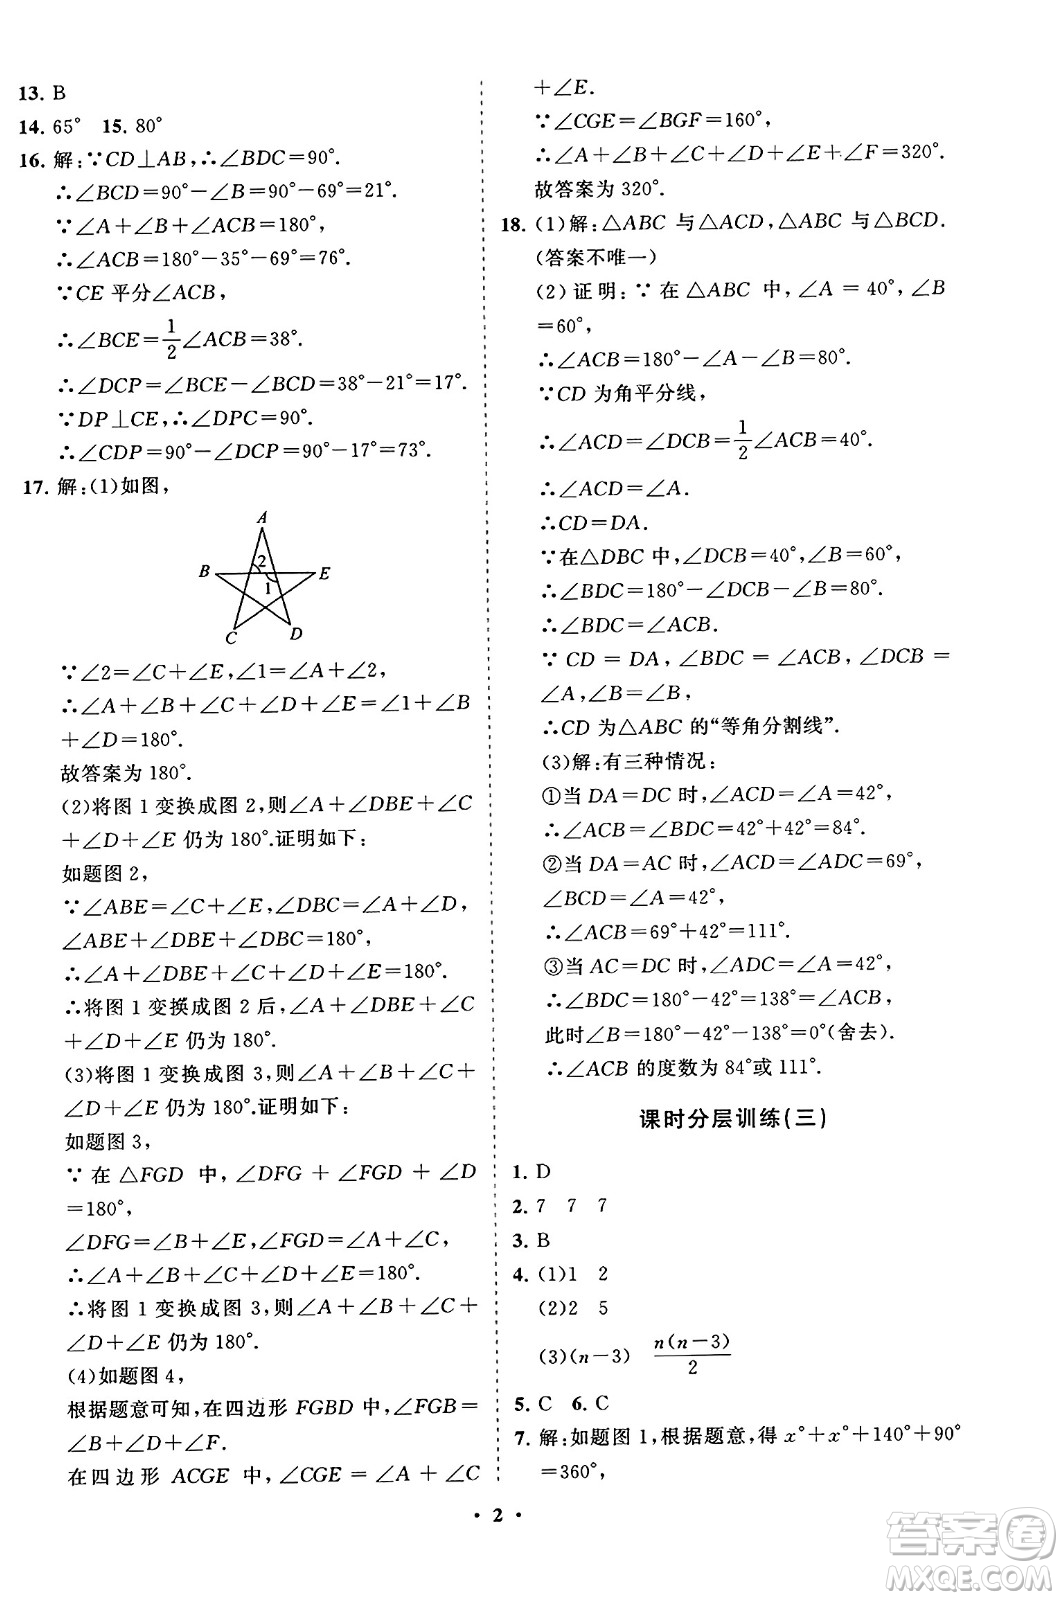 13. B
14. 65°  15. 80°
16. 解:∵CD⊥AB,∴∠BDC=90°.
∴∠BCD=90°-∠B=90°-69°=21°.
∵∠A+∠B+∠ACB=180°,
∴∠ACB=180°-35°-69°=76°.
∵CE 平分∠ACB,
∴∠BCE=1/2∠ACB=38°.
∴∠DCP=∠BCE-∠BCD=38°-21°=17°.
∵DP⊥CE,∴∠DPC=90°.
∴∠CDP=90°-∠DCP=90°-17°=73°.
17. 解:(1)如图,
A
B
2
E
1
C
D
∵∠2=∠C+∠E,∠1=∠A+∠2,
∴∠A+∠B+∠C+∠D+∠E=∠1+∠B
+∠D=180°.
故答案为 180°.
(2)将图 1 变换成图 2,则∠A+∠DBE+∠C
+∠D+∠E 仍为 180°.证明如下:
如题图 2,
∵∠ABE=∠C+∠E,∠DBC=∠A+∠D,
∠ABE+∠DBE+∠DBC=180°,
∴∠A+∠DBE+∠C+∠D+∠E=180°.
∴将图 1 变换成图 2 后,∠A+∠DBE+∠C
+∠D+∠E 仍为 180°.
(3)将图 1 变换成图 3,则∠A+∠B+∠C+
∠D+∠E 仍为 180°.证明如下:
如题图 3,
∵ 在 △FGD 中,∠DFG + ∠FGD + ∠D
=180°,
∠DFG=∠B+∠E,∠FGD=∠A+∠C,
∴∠A+∠B+∠C+∠D+∠E=180°.
∴将图 1 变换成图 3,则∠A+∠B+∠C+
∠D+∠E 仍为 180°.
(4)如题图 4,
根据题意可知,在四边形 FGBD 中,∠FGB=
∠B+∠D+∠F.
在四边形 ACGE 中,∠CGE=∠A+∠C
+∠E.
∵∠CGE=∠BGF=160°,
∴∠A+∠B+∠C+∠D+∠E+∠F=320°.
故答案为 320°.
18. (1)解:△ABC 与△ACD,△ABC 与△BCD.
(答案不唯一)
(2)证明:∵ 在△ABC 中,∠A = 40°,∠B
=60°,
∴∠ACB=180°-∠A-∠B=80°.
∵CD 为角平分线,
∴∠ACD=∠DCB=1/2∠ACB=40°.
∴∠ACD=∠A.
∴CD=DA.
∵在△DBC 中,∠DCB=40°,∠B=60°,
∴∠BDC=180°-∠DCB-∠B=80°.
∴∠BDC=∠ACB.
∵ CD = DA,∠BDC=∠ACB,∠DCB =
∠A,∠B=∠B,
∴CD 为△ABC 的“等角分割线”.
(3)解:有三种情况:
①当 DA=DC 时,∠ACD=∠A=42°,
∴∠ACB=∠BDC=42°+42°=84°.
②当 DA=AC 时,∠ACD=∠ADC=69°,
∠BCD=∠A=42°.
∴∠ACB=69°+42°=111°.
③当 AC=DC 时,∠ADC=∠A=42°,
∴∠BDC=180°-42°=138°=∠ACB,
此时∠B=180°-42°-138°=0°(舍去).
∴∠ACB 的度数为 84°或 111°.
课时分层训练(三)
1. D
2. 7  7  7
3. B
4. (1)1  2
(2)2  5
(3)(n-3)  n(n-3)/2
5. C  6. C
7. 解:如题图 1,根据题意,得 x°+x°+140°+90°
=360°,
· 2 ·
答案圈
MXQE.COM